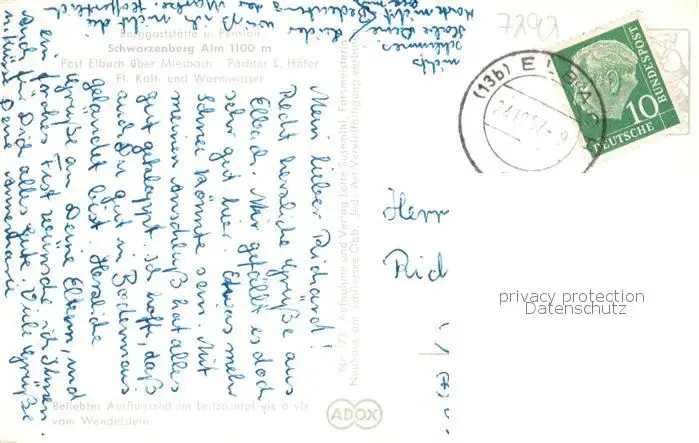 Berggaststätte u. Pension
Schwarzenberg Alm 1100 m
Post Elbach über Miesbach Pächter L. Höfer
Fl. Kalt- und Warmwasser
Mein lieber Richard!
Recht herzliche Grüße aus
Elbach. Mir gefällt es doch
sehr gut hier. Etwas mehr
Schnee könnte sein. Mit
meinem Anschluß hat alles
gut geklappt. Ich hoffe, daß
auch Du gut in Bodenmais
gelandet bist. Herzliche
Grüße an Deine Eltern, und
ein frohes Fest wünsche ich Ihnen
und Dir alles gute. Viele Grüße
Deine Annemarie
Nr. 173 Aufnahme und Verlag Lotte
Neuhaus am Schliersee Obb. Jede Art Vervielfältigung
Beliebtes Ausflugsziel im Leitzachtal vis à vis
vom Wendelstein.
ADOX
7292
(13b) ELBAC
10
DEUTSCHE
BUNDESPOST
Herrn
Rich
privacy protection
Datenschutz